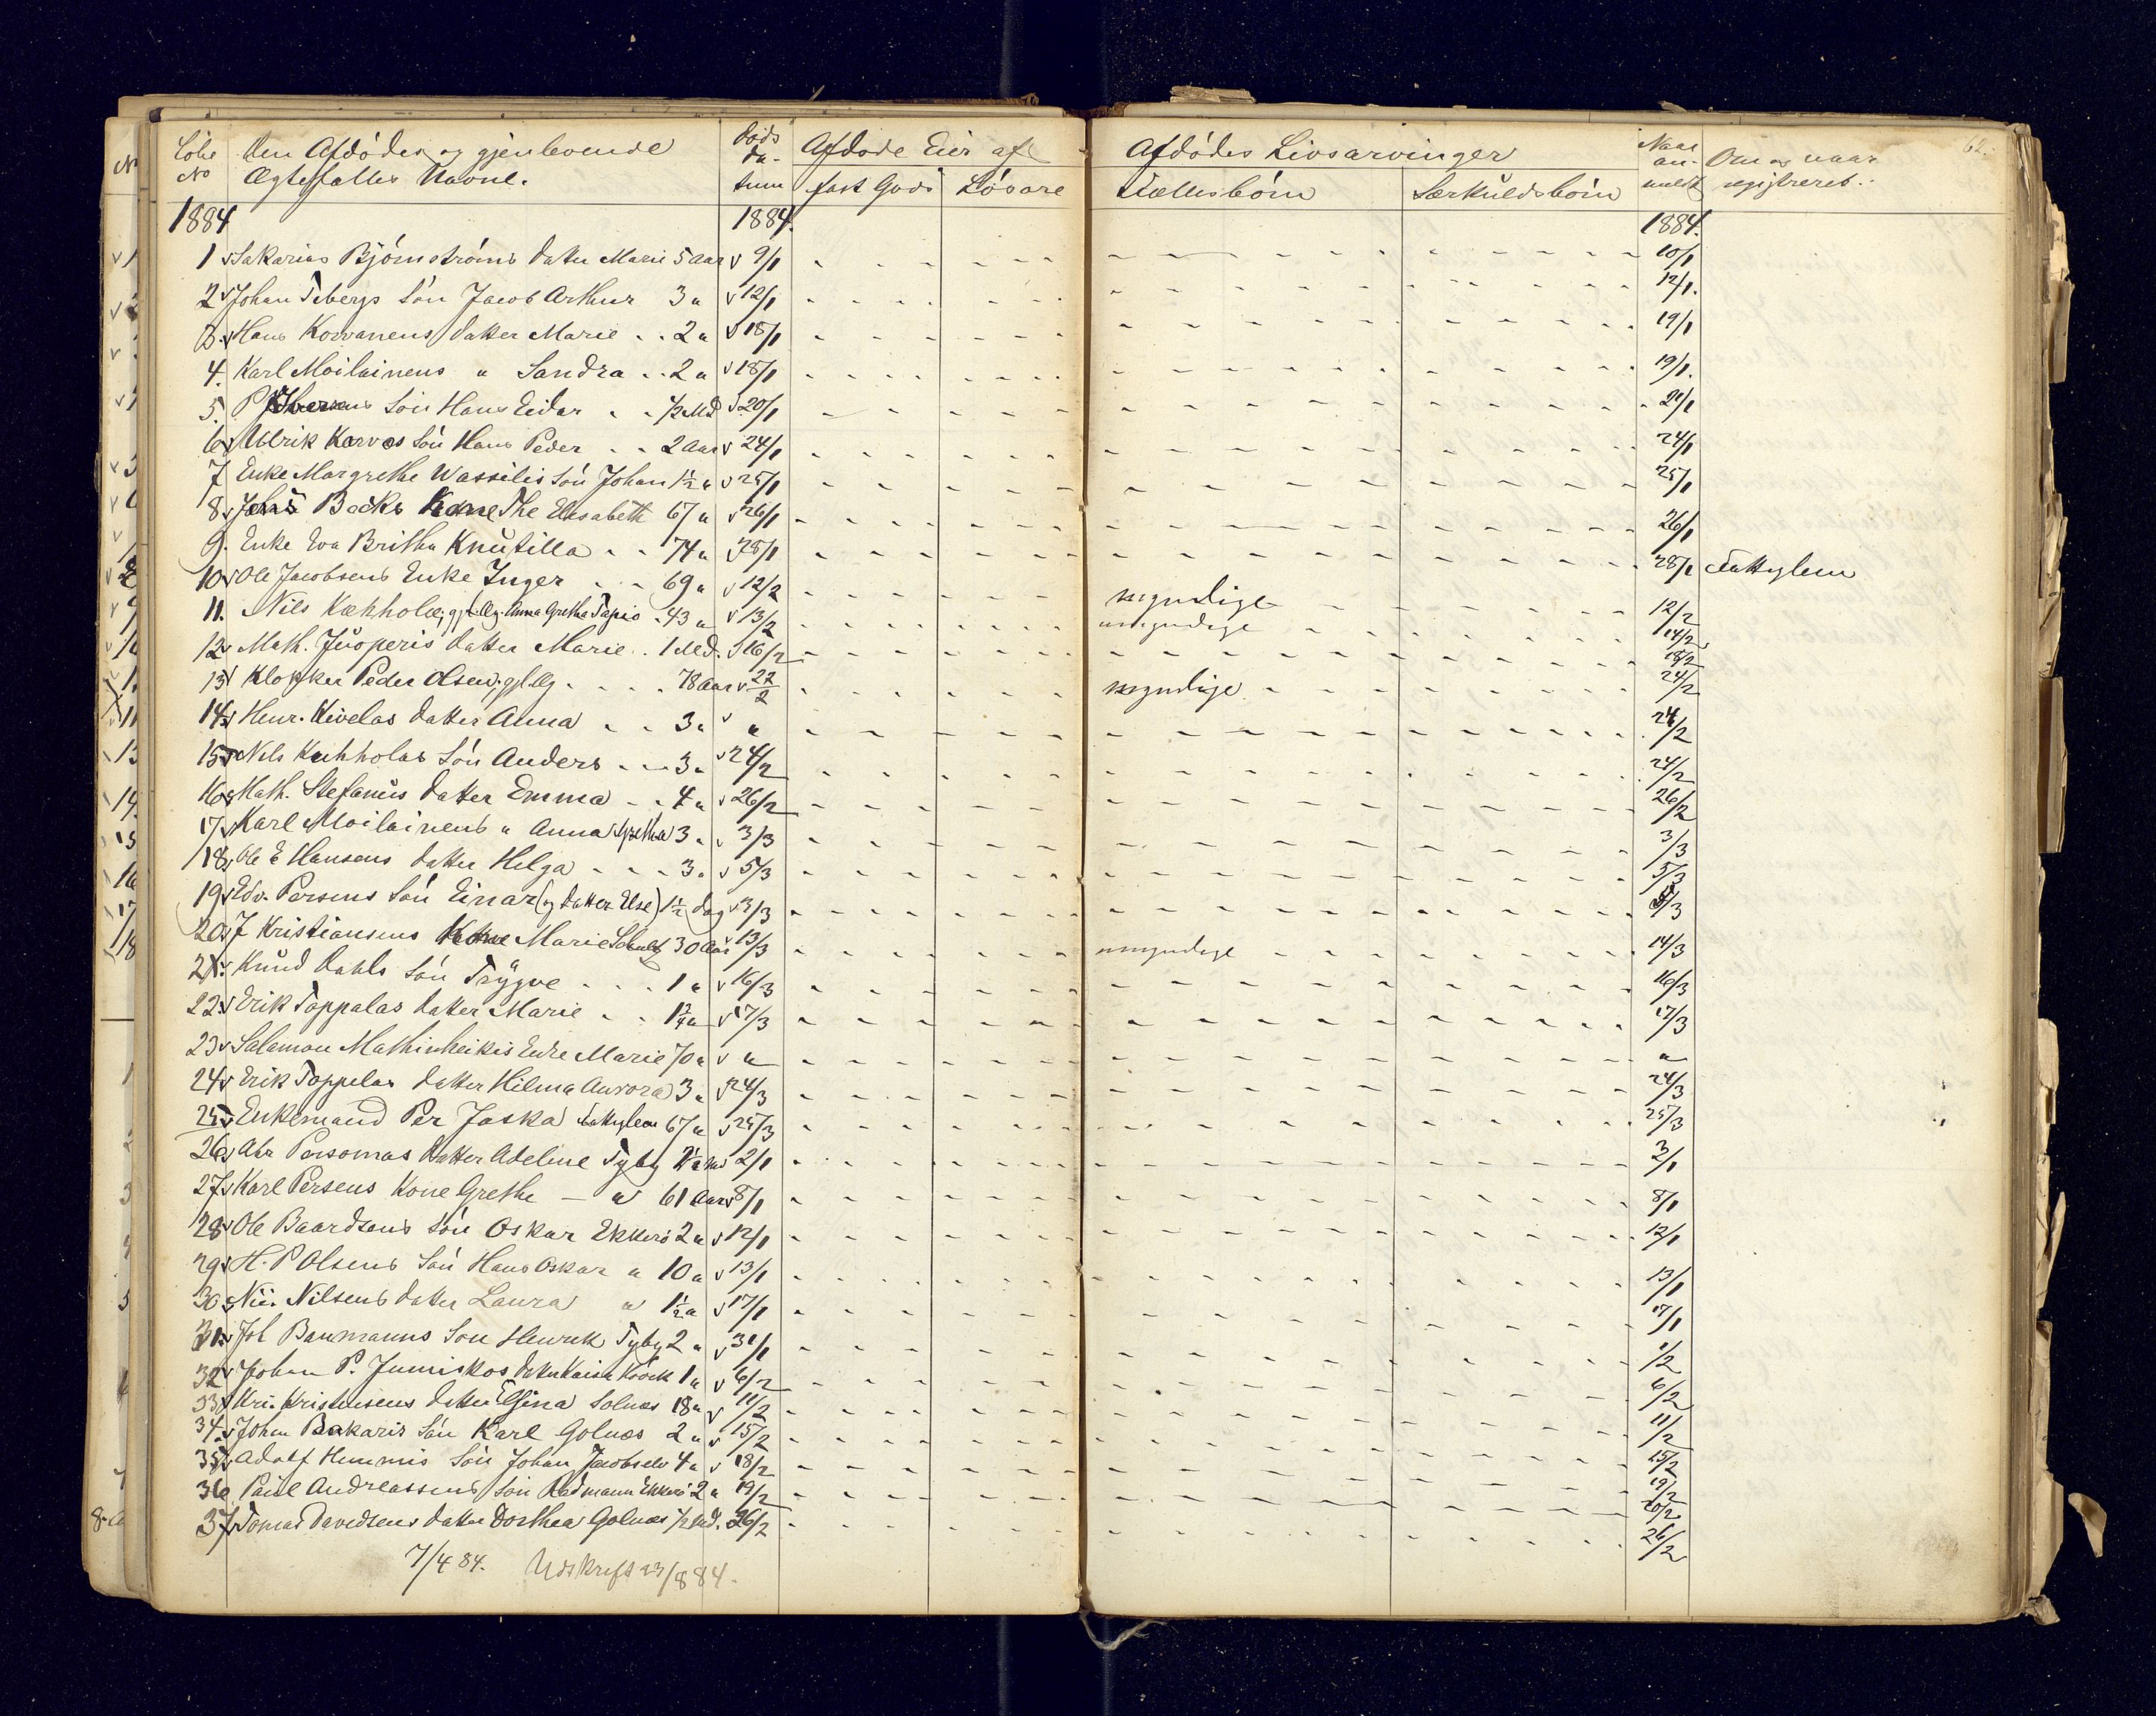 Løbe No Den Afdødes og gjenlevende Ægtefælles Navne. Døds datum Afdøde Eier af fast Gods Løsøre Afdødes Livsarvinger Fællesbørn Særkuldsbørn Naar anmeldt Om og naar registreret. 62.
1884 1884. 1884.
1 Sakarias Bjørnstrøms datter Marie 5 Aar 9/1 10/1
2 Johan Tebergs Søn Jacob Arthur 3 " 12/1 12/1.
3. Hans Korvanens datter Marie 2 " 18/1 19/1
4. Karl Moilainens " Sandra 2 " 18/1 19/1.
5. P Søn Hans Eidar 1/2 Md 20/1 21/1
6 Ulrik Karvos Søn Hans Peder 2 Aar 24/1 24/1
7 Enke Margrethe Wassilis Søn Johan 1 1/2 " 25/1 25/1
8 Backs Kone The Elisabeth 67 " 26/1 26/1
9. Enke Eva Britha Knutilla 74 " 28/1 28/1 Fattiglem
10 Ole Jacobsens Enke Inger 69 " 12/2 myndige 12/2
11. Nils Kæhhola, gjl. Æg. Anna Gretha Tapio 43 " 13/2 umyndige 14/2
12 Math. Juoperis datter Marie 1 Md. 16/2 18/2
13 Klokker Peder Olsen, gjl. Æg 78 Aar 22/2 myndige 24/2
14 Henr. Kivelas datter Anna 3 " " 24/2
15 Nils Kæhholas Søn Anders 3 " 24/2 24/2
16 Math. Stefanus datter Emma 4 " 26/2 26/2
17 Karl Moilainens " Anna Gretha 3 " 3/3 3/3
18 Ole E Hansens datter Helga 3 " 5/3 5/3
19 Edv. Persens Søn Einar (og datter Else) 1 1/2 dag 3/3 /3
20 J Kristiansens Kone Marie 30 Aar 13/3 umyndige 14/3
21. Knud Dahls Søn Trygve 1 " 16/3 16/3
22 Erik Toppalas datter Marie 1 3/4 " 17/3 17/3
23 Salamon Mathinheikis Enke Marie 70 " " "
24 Erik Toppelas datter Hilma Aurora 3 " 24/3 24/3
25 Enkemand Per Jaska Fattiglem 67 " 25/3 25/3
26 Abr Personas datter Adeline Tyby 2/1 3/1
27 Karl Persens Kone Grethe — " 61 Aar 8/1 8/1
28 Ole Baardsens Søn Oskar Ekkerø 2 " 12/1 12/1
29 H. P Olsens Søn Hans Oskar " 10 " 13/1 13/1
30 Nilsens datter Laura " 1 1/2 " 17/1 17/1
31. Joh Banmanns Søn Henrik Tyby 2 " 31/1 1/2
32 Johan P. Jumiskos datter Kaisa 1 " 6/2 6/2
33 Kri. Kristensens datter Elfina Golnæs 18 " 11/2 11/2
34. Johan Bakaris Søn Karl Golnæs 2 " 15/2 15/2
35 Adolf Hemmis Søn Johan Jacobselv 4 " 18/2 19/2
36 Paul Andreassens Søn Redmann Ekkerø 2 " 19/2 20/2
37 Tomas Davidsens datter Dorthea Golnæs 1/2 Md. 26/2 26/2
7/4 84. Udskrift 23/8 84.